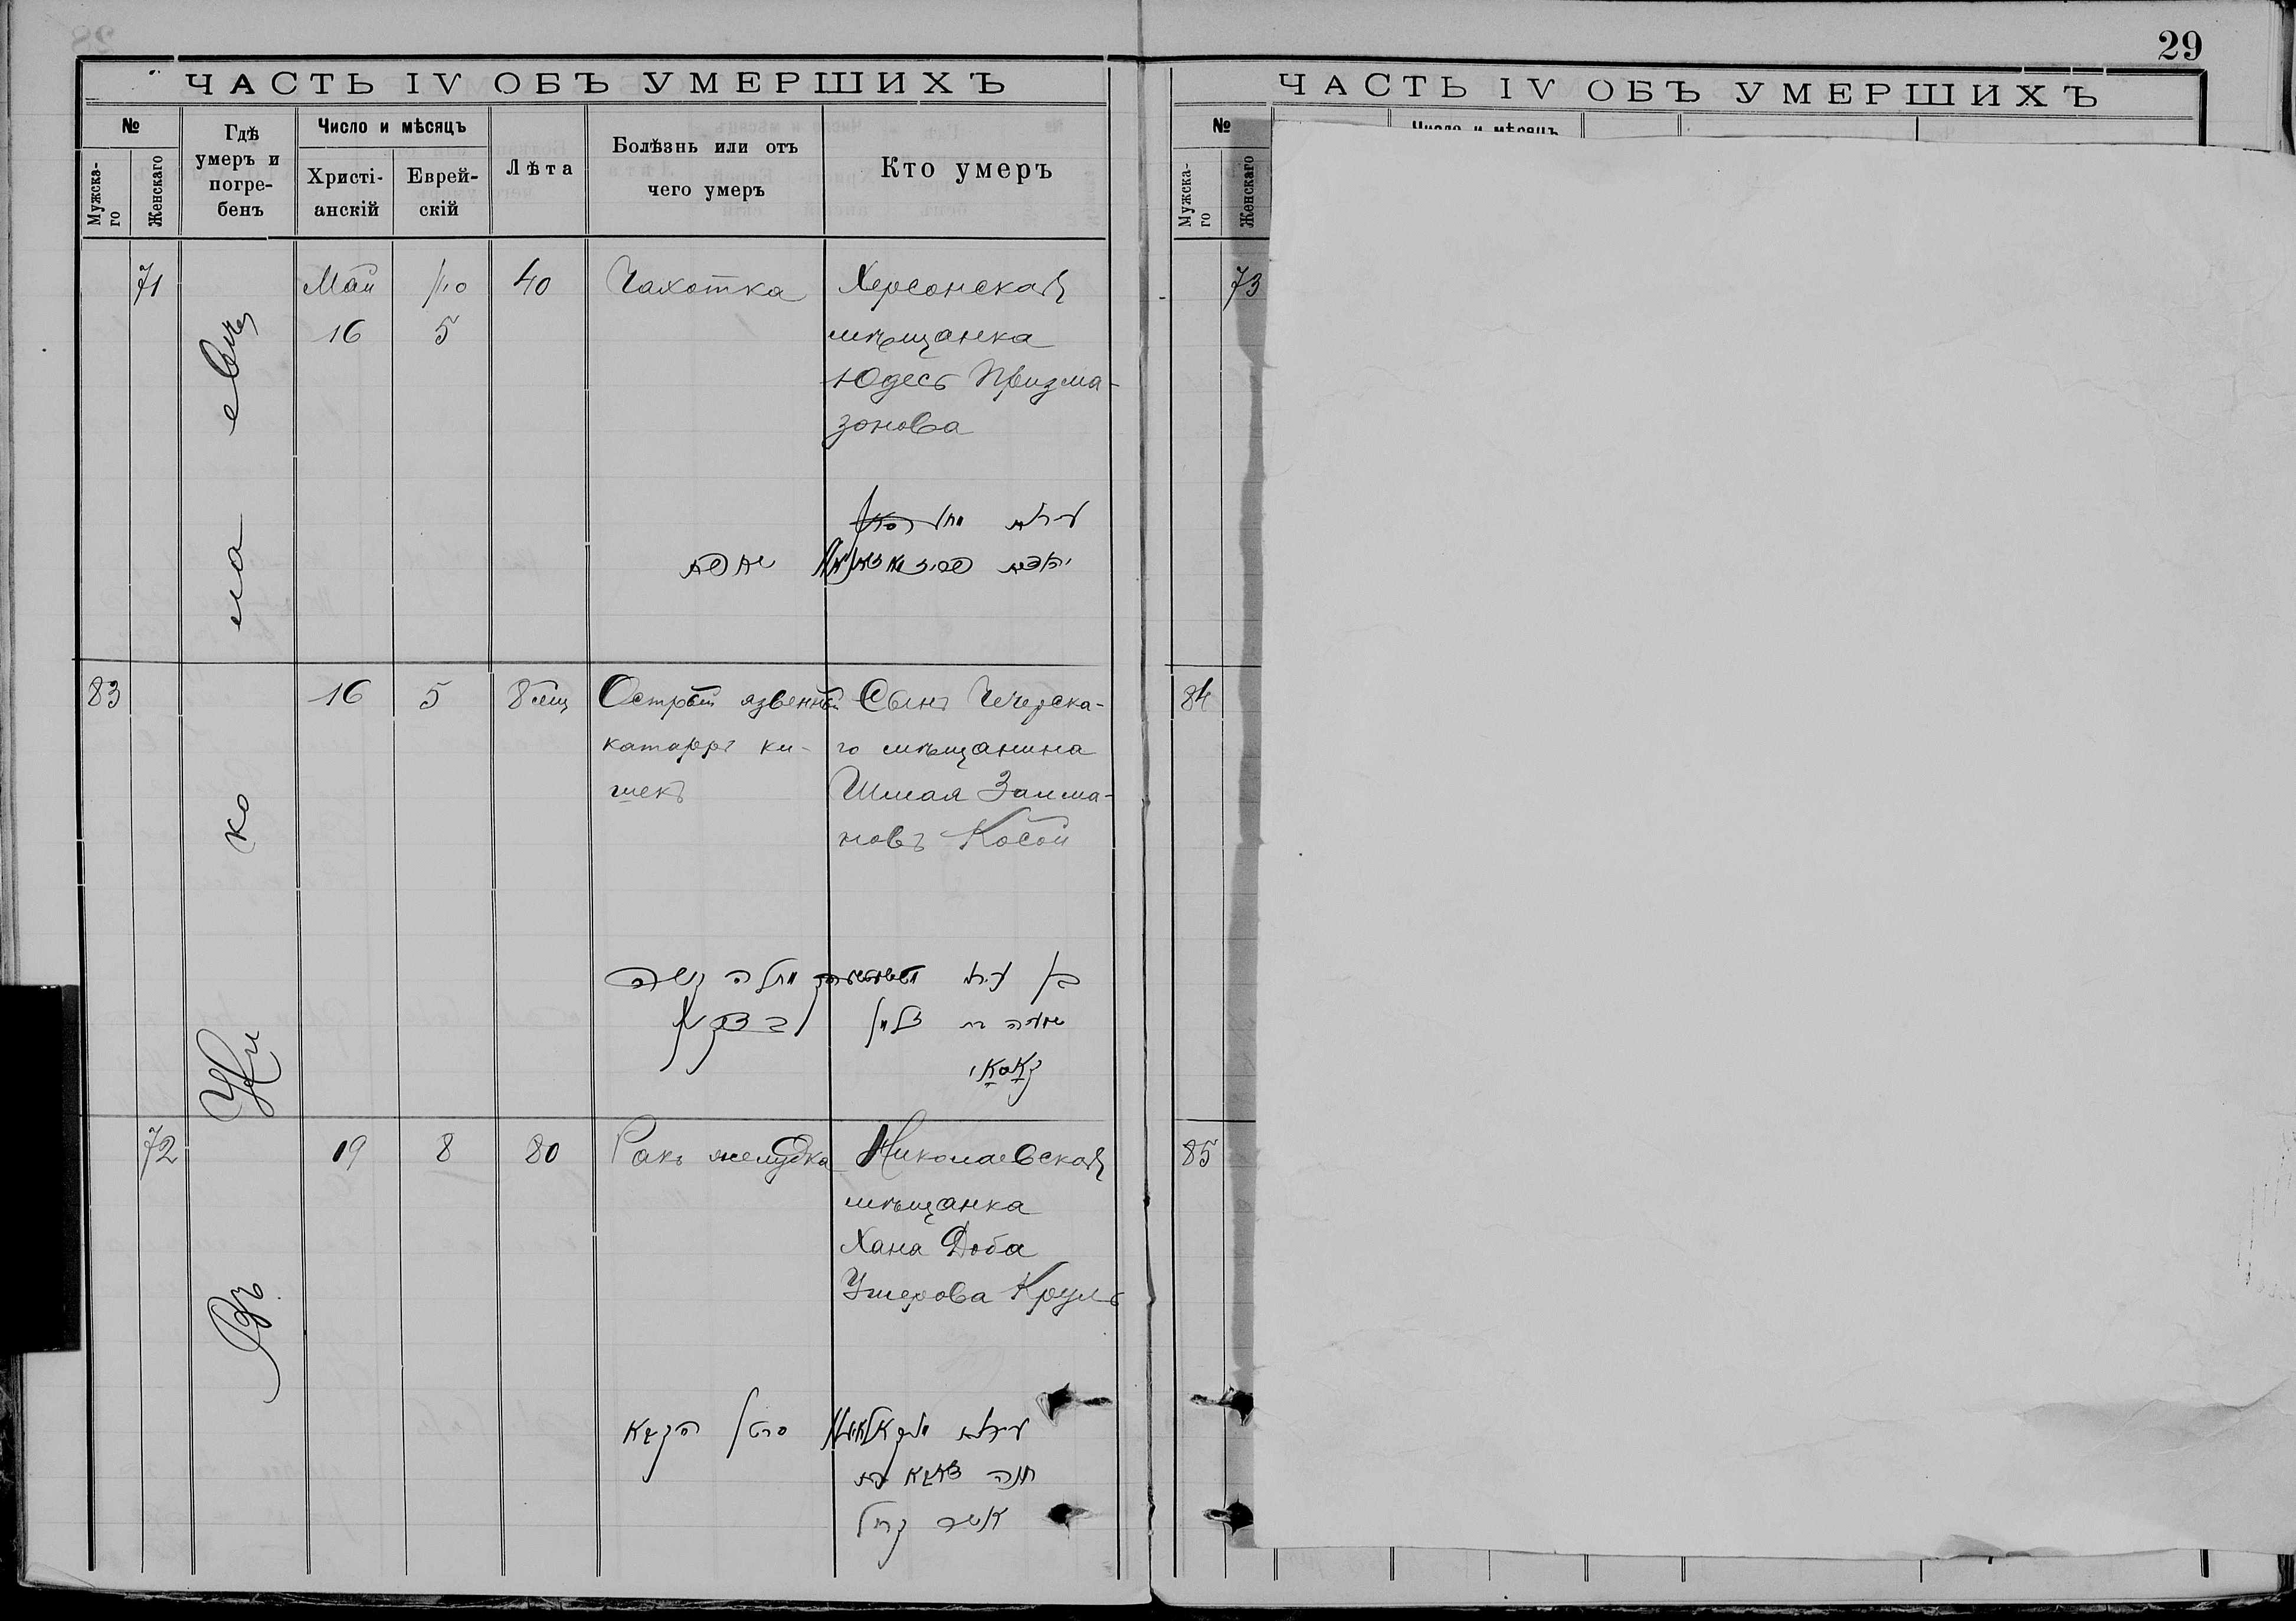 29
ЧАСТЬ IV ОБЪ УМЕРШИХЪ
№
Мужска-
го
Женскаго
Гдѣ
умеръ и
погре-
бенъ
Число и мѣсяцъ
Христі-
анскій
Еврей-
скій
Лѣта
Болѣзнь или отъ
чего умеръ
Кто умеръ
71
Май
16
5
40
Чахотка
Херсонская
мѣщанка
Юдесь Призма-
зонова
83
16
5
8 мѣц
Острый язвенный
катарръ ки-
шекъ
Сынъ Чечерска-
го мѣщанина
Шмая Залма-
новъ Косой
בן
שמעיה
זלמן
קאסאי
72
19
8
80
Ракъ желудка
Николаевская
мѣщанка
Хана Доба
Ушерова Круль
סרטן הקבה
חנה
אשר קרול
въ
Ни
ко
ла
евѣ
ЧАСТЬ IV ОБЪ УМЕРШИХЪ
№
Мужска-
го
Женскаго
Число и мѣсяцъ
73
84
85